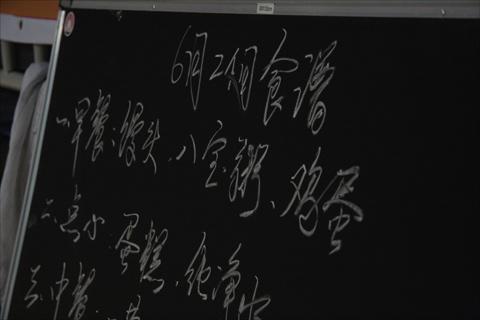 6月2日食谱
一、早餐：馒头、八宝粥、鸡蛋
二、点心：蛋糕、纯净水
三、中餐：